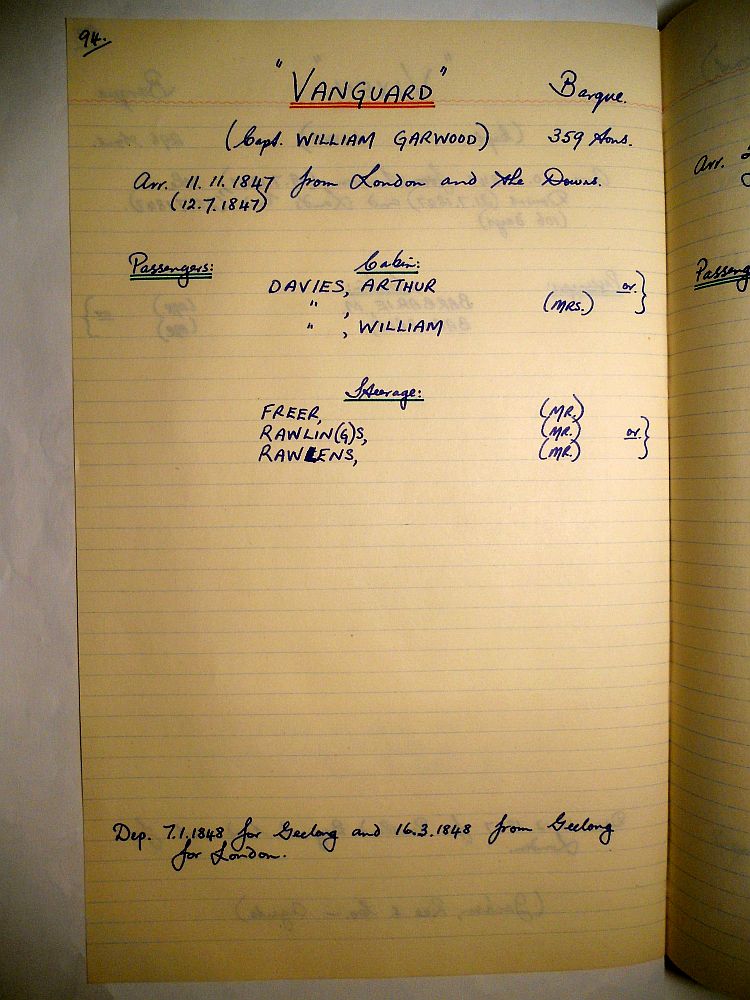 94.
"VANGUARD" Barque.
(Capt. WILLIAM GARWOOD) 359 tons.
Arr. 11.11.1847 from London and the Downs.
(12.7.1847)
Passengers: Cabin:
DAVIES, ARTHUR or }
" , (MRS.)
" , WILLIAM
Steerage:
FREER, (MR.)
RAWLIN(G)S, (MR.) or }
RAWLENS, (MR.)
Dep. 7.1.1848 for Geelong and 16.3.1848 from Geelong
for London.
Arr.
Passeng